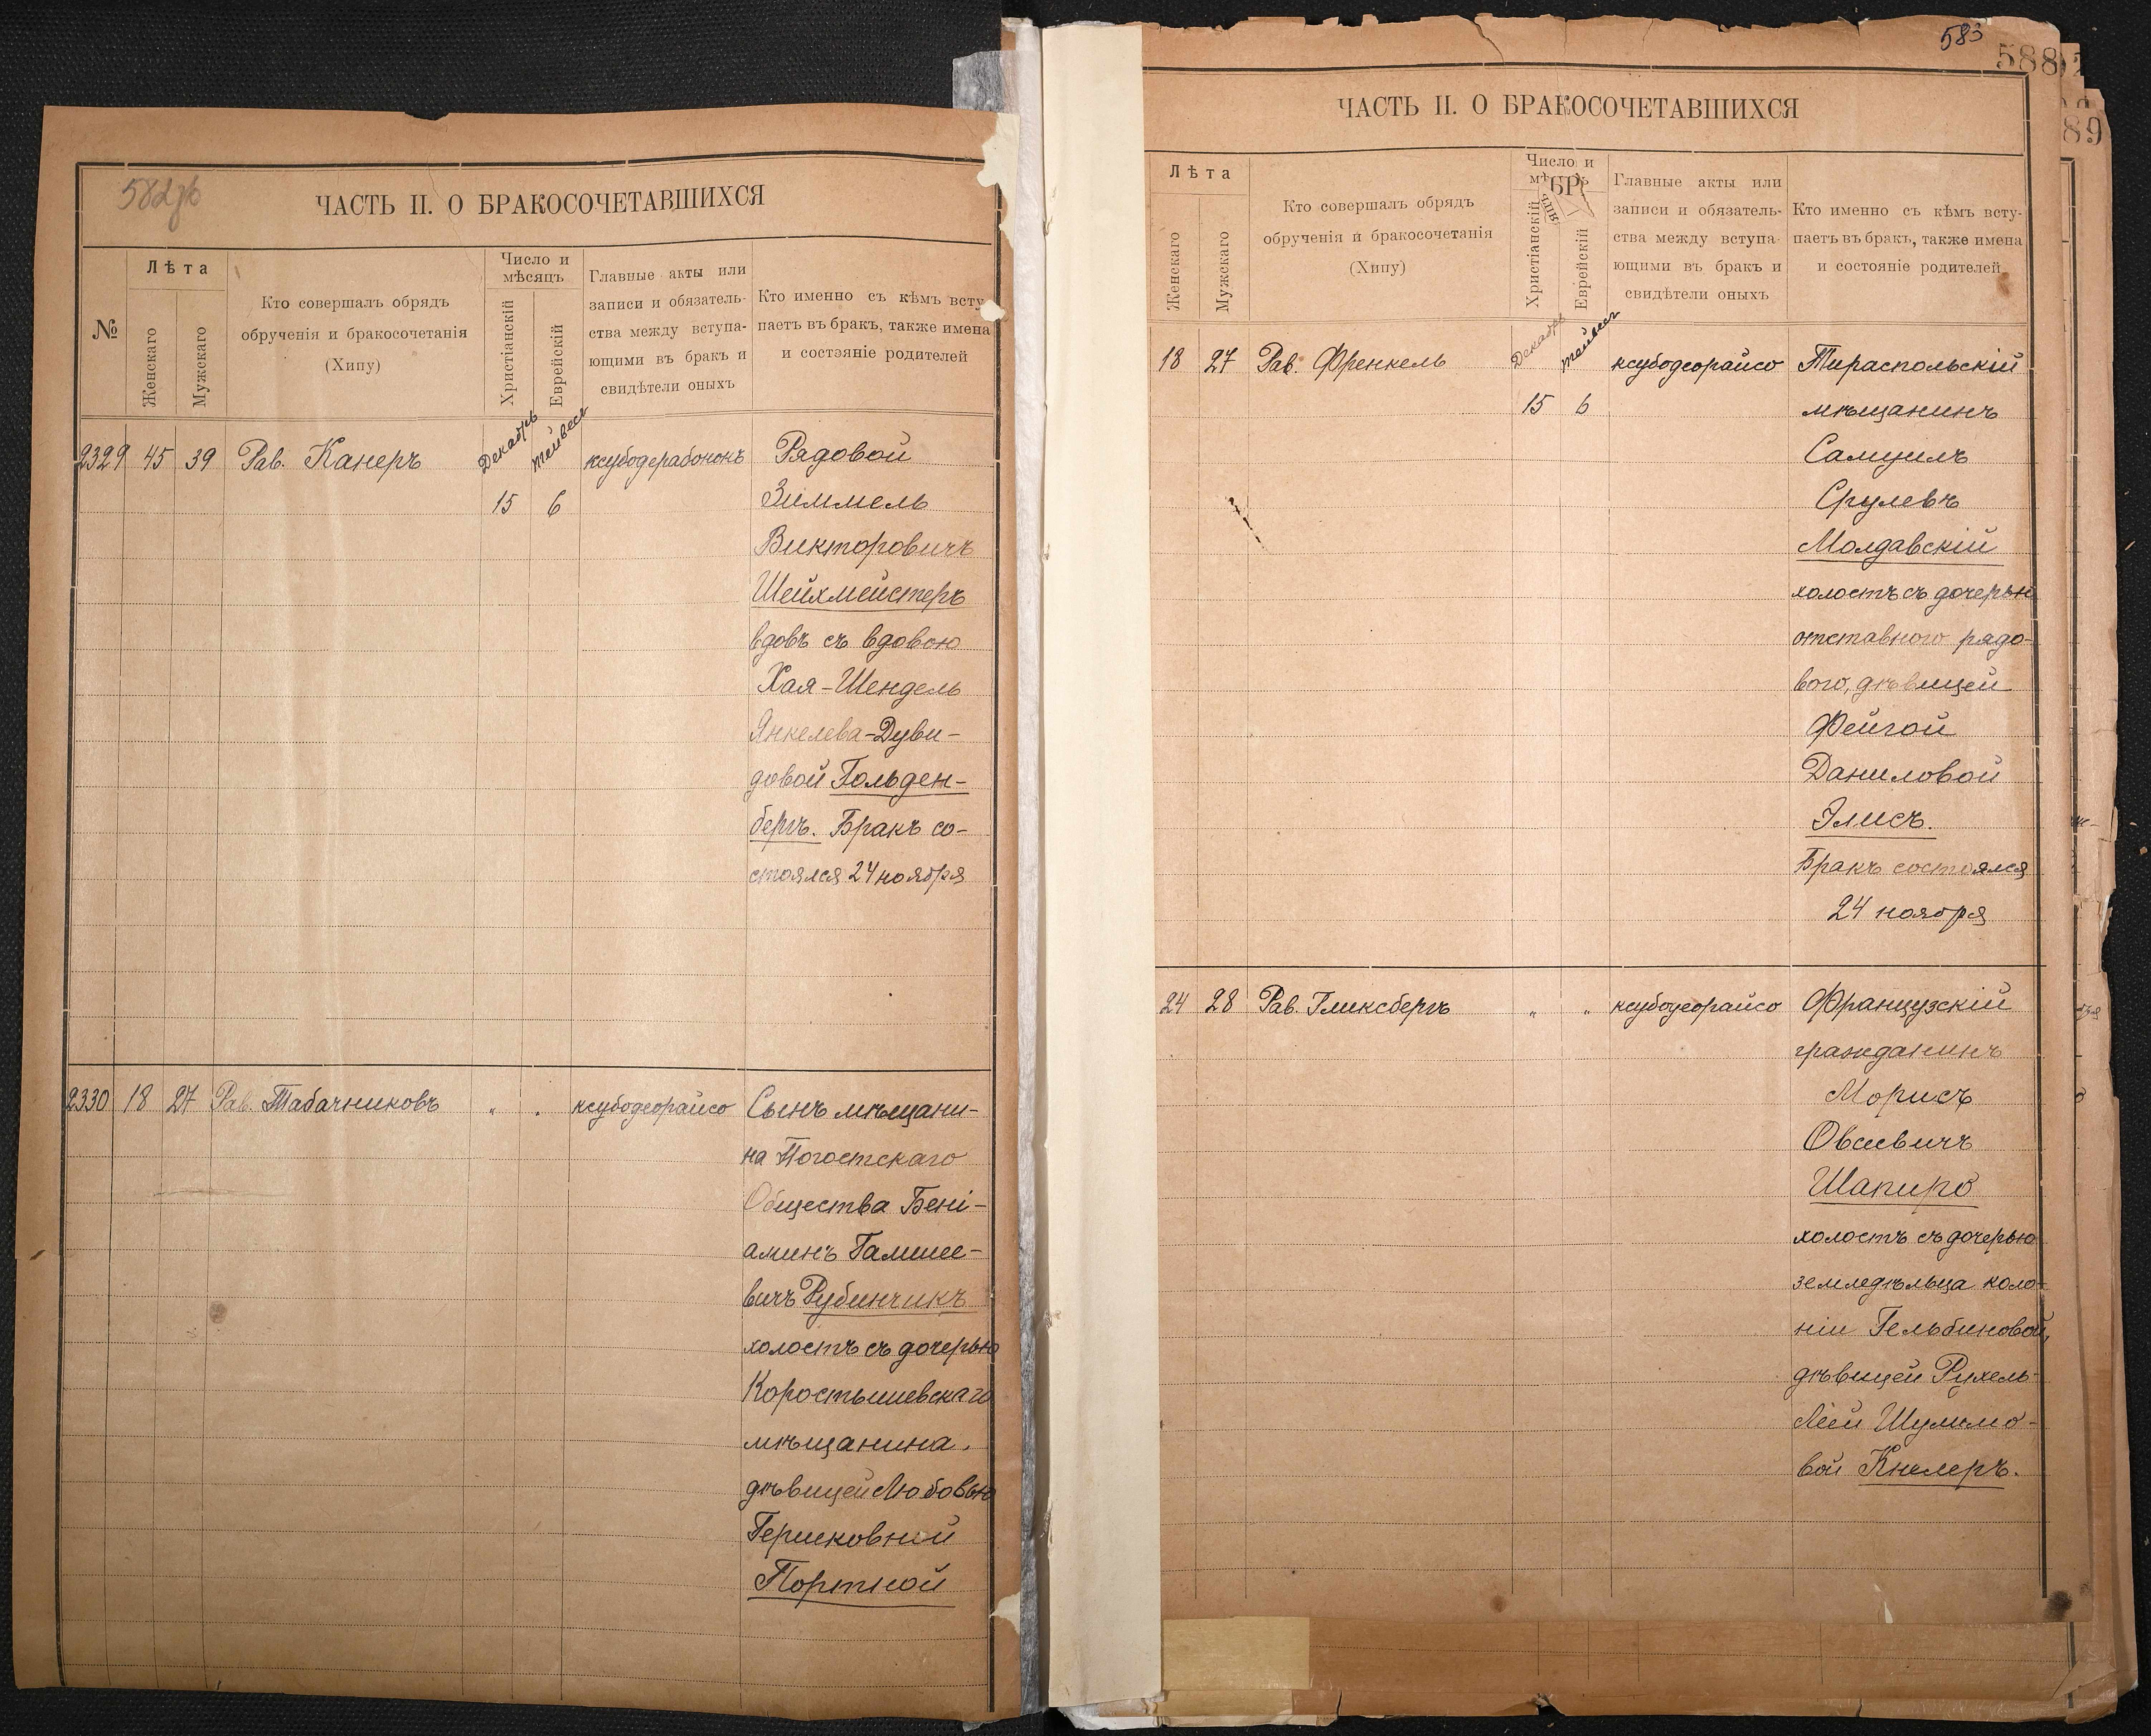 582об
ЧАСТЬ II. О БРАКОСОЧЕТАВШИХСЯ
№
Лѣта
Женскаго
Мужскаго
Кто совершалъ обрядъ
обрученія и бракосочетанія
(Хипу)
Число и
мѣсяцъ
Христіанскій
Еврейскій
Главные акты или
записи и обязатель-
ства между вступа-
ющими въ бракъ и
свидѣтели оныхъ
Кто именно съ кѣмъ всту
паетъ въ бракъ, также имена
и состояніе родителей
2329 45 39 Рав. Канеръ Декабрь Тейвес ксубодерабононъ Рядовой
15 6 Зиммель
Викторовичъ
Шейхмейстеръ
вдовъ съ вдовою
Хая-Шендель
Янкелева-Дуви-
довой Гольден-
бергъ. Бракъ со-
стоялся 24 ноября
2330 18 27 Рав. Табачниковъ " " ксубодеорайсо Сынъ мѣщани-
на Погостскаго
Общества Бені-
аминъ Гамшее-
вичъ Рубинчикъ
холостъ съ дочерью
Коростышевскаго
мѣщанина,
дѣвицей Любовью
Гершковной
Портной
583
588
89
ЧАСТЬ II. О БРАКОСОЧЕТАВШИХСЯ
Лѣта
Женскаго
Мужскаго
Кто совершалъ обрядъ
обрученія и бракосочетанія
(Хипу)
Число и
Христіанскій
Еврейскій
Главные акты или
записи и обязатель-
ства между вступа-
ющими въ бракъ и
свидѣтели оныхъ
Кто именно съ кѣмъ всту-
паетъ въ бракъ, также имена
и состояніе родителей
18 27 Рав. Френкель Декабрь Тейвес ксубодеорайсо Тираспольскій
15 6 мѣщанинъ
Самуилъ
Срулевъ
Молдавскій
холостъ съ дочерью
отставного рядо-
вого, дѣвицей
Фейгой
Даниловой
Элисъ.
Бракъ состоялся
24 ноября
24 28 Рав. Гликсбергъ " " ксубодеорайсо Французскій
гражданинъ
Морисъ
Овсеевичъ
Шапиро
холостъ съ дочерью
земледѣльца коло-
ніи Гельбиновой,
дѣвицей Рухель-
Леей Шулимо-
вой Кнелеръ.